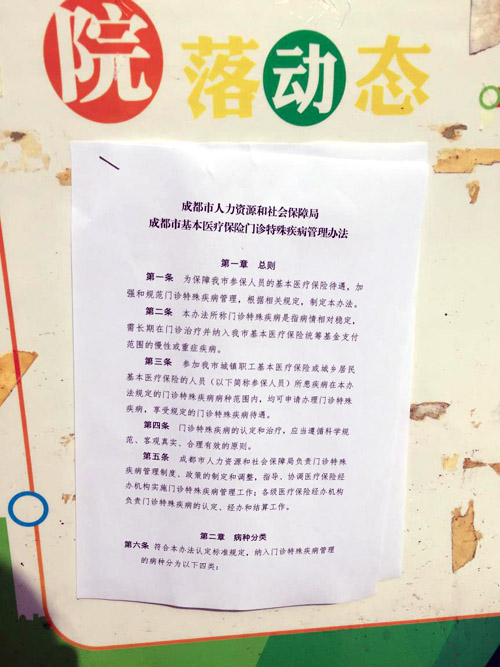 院落动态
成都市人力资源和社会保障局
成都市基本医疗保险门诊特殊疾病管理办法
第一章 总则
第一条 为保障我市参保人员的基本医疗保险待遇,加
强和规范门诊特殊疾病管理,根据相关规定,制定本办法。
第二条 本办法所称门诊特殊疾病是指病情相对稳定,
需长期在门诊治疗并纳入我市基本医疗保险统筹基金支付
范围的慢性或重症疾病。
第三条 参加我市城镇职工基本医疗保险或城乡居民
基本医疗保险的人员(以下简称参保人员)所患疾病在本办
法规定的门诊特殊疾病病种范围内,均可申请办理门诊特殊
疾病,享受规定的门诊特殊疾病待遇。
第四条 门诊特殊疾病的认定和治疗,应当遵循科学规
范、客观真实、合理有效的原则。
第五条 成都市人力资源和社会保障局负责门诊特殊
疾病管理制度、政策的制定和调整,指导、协调医疗保险经
办机构实施门诊特殊疾病管理工作;各级医疗保险经办机构
负责门诊特殊疾病的认定、经办和结算工作。
第二章 病种分类
第六条 符合本办法认定标准规定,纳入门诊特殊疾病管理
的病种分为以下四类: